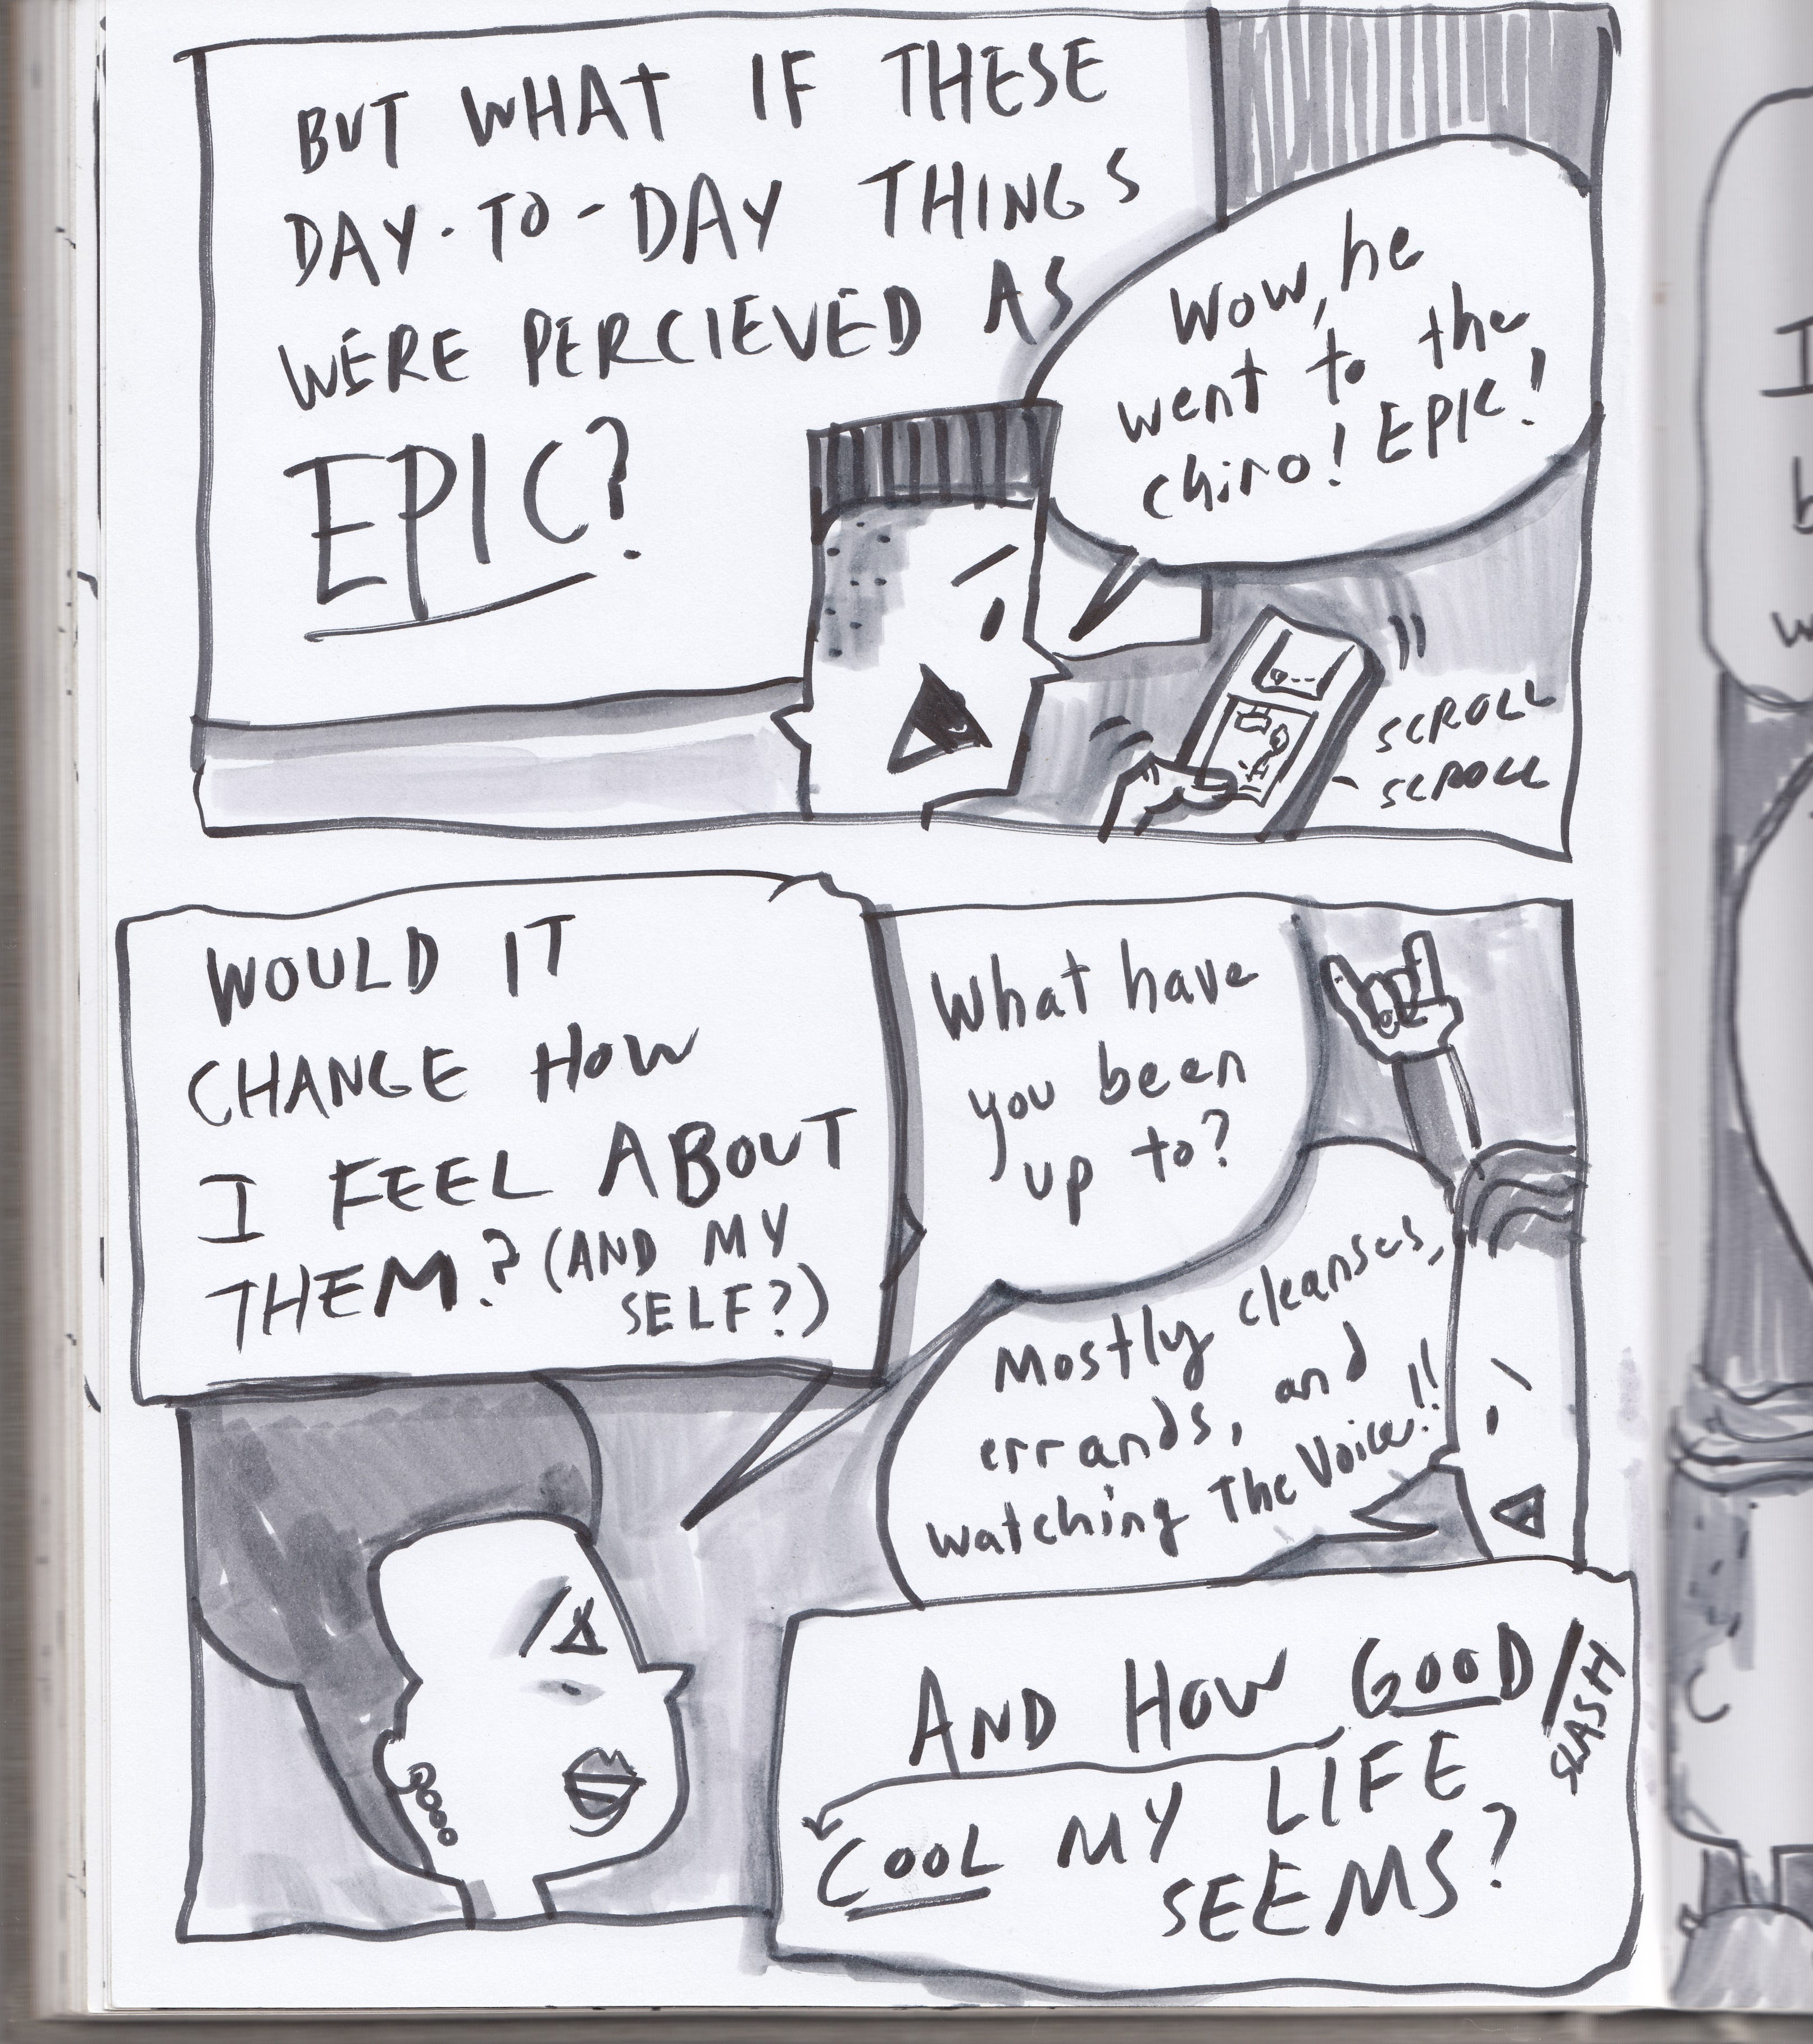 BUT WHAT IF THESE
DAY-TO-DAY THINGS
WERE PERCIEVED AS
EPIC?
Wow, he
went to the
chiro! EPIC!
SCROLL
SCROLL
WOULD IT
CHANGE HOW
I FEEL ABOUT
THEM? (AND MY
SELF?)
What have
you been
up to?
Mostly cleanses,
errands, and
watching The Voice!!
AND HOW GOOD/
SLASH
COOL MY LIFE
SEEMS?
I